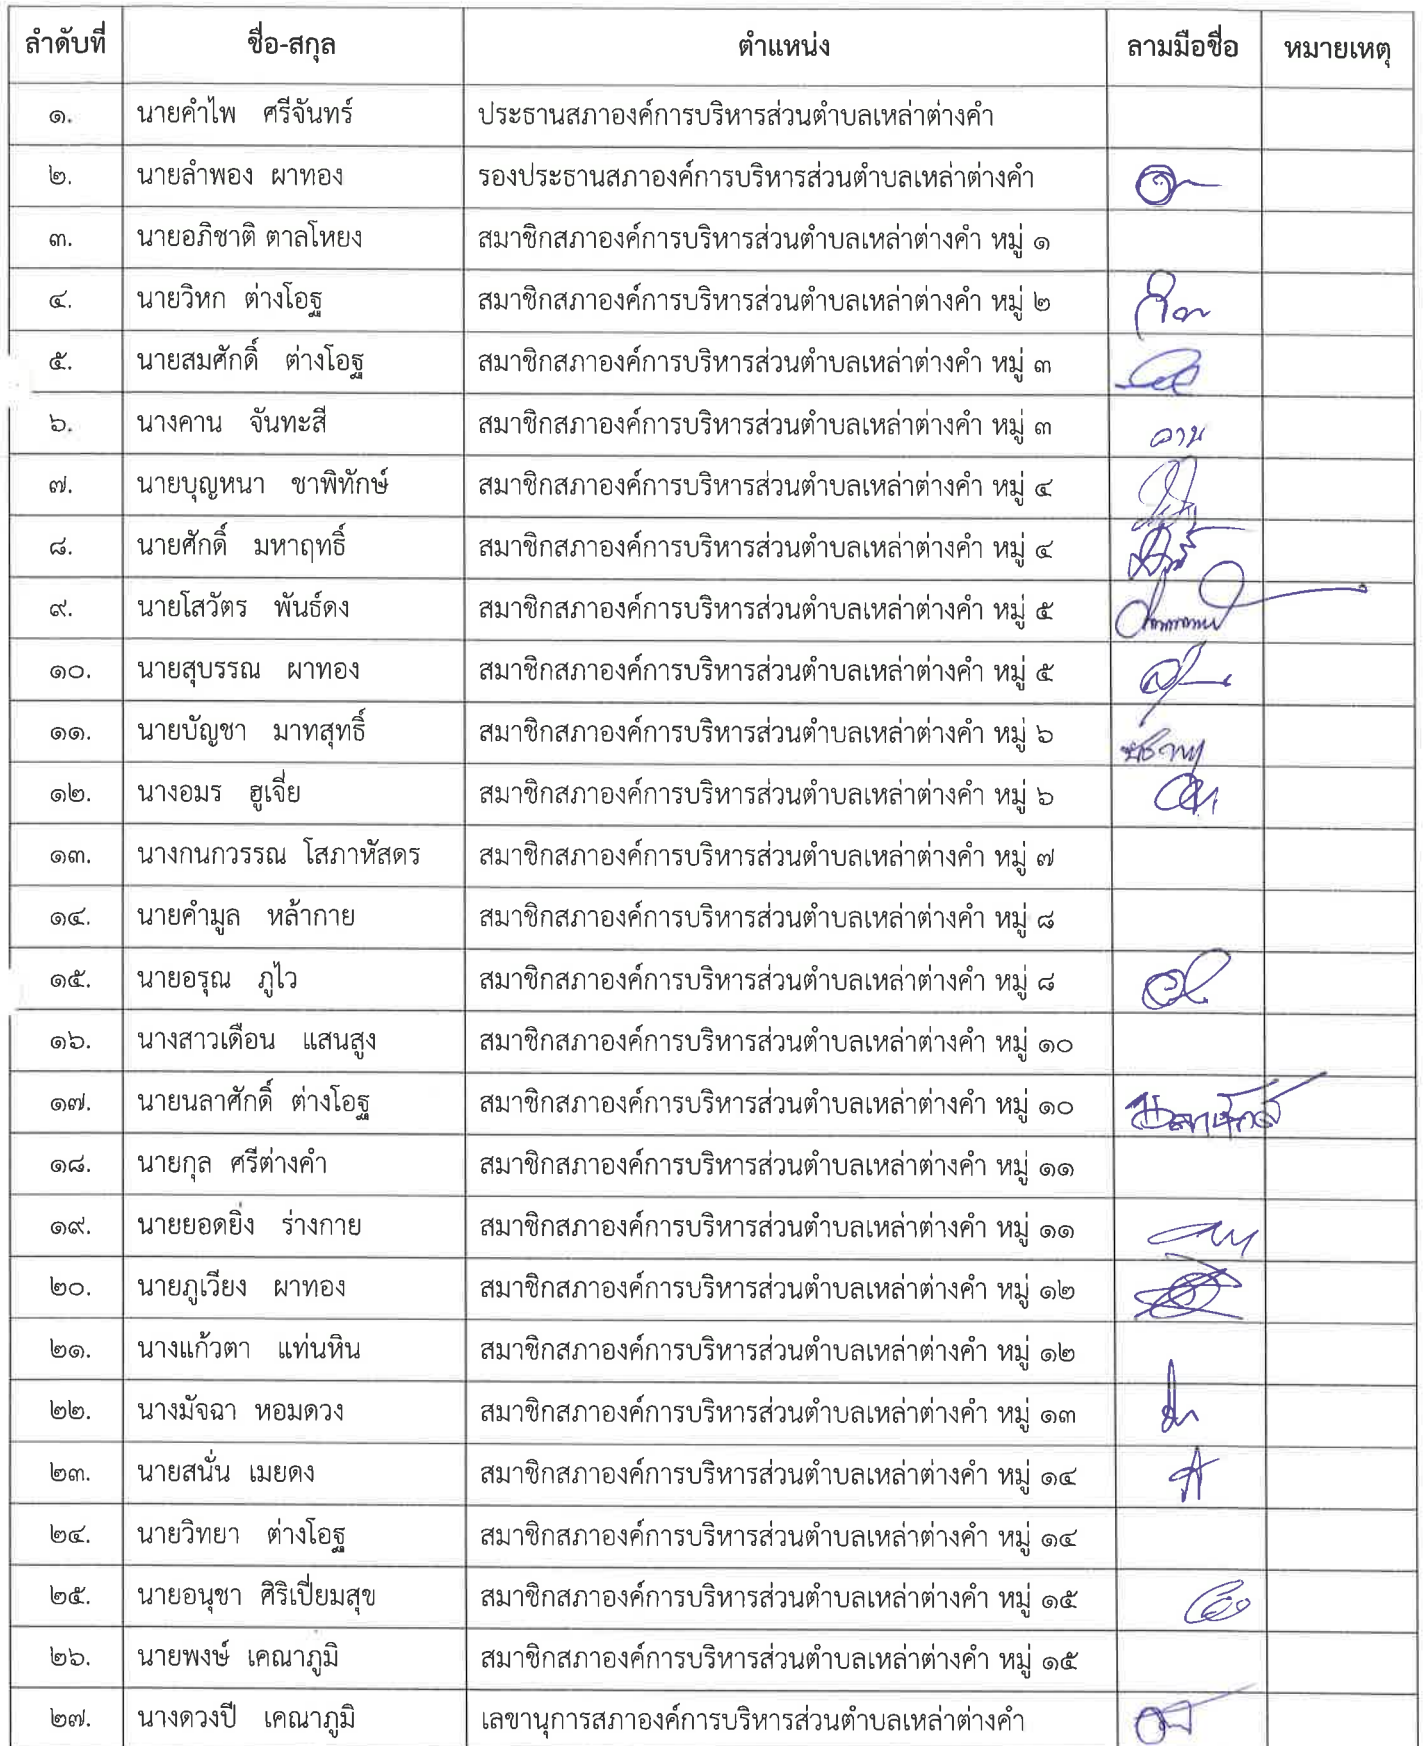 ลำดับที่ ชื่อ-สกุล ตำแหน่ง ลามมือชื่อ หมายเหตุ
๑. นายคำไพ ศรีจันทร์ ประธานสภาองค์การบริหารส่วนตำบลเหล่าต่างคำ
๒. นายลำพอง ผาทอง รองประธานสภาองค์การบริหารส่วนตำบลเหล่าต่างคำ
๓. นายอภิชาติ ตาลโหยง สมาชิกสภาองค์การบริหารส่วนตำบลเหล่าต่างคำ หมู่ ๑
๔. นายวิหก ต่างโอฐ สมาชิกสภาองค์การบริหารส่วนตำบลเหล่าต่างคำ หมู่ ๒
๕. นายสมศักดิ์ ต่างโอฐ สมาชิกสภาองค์การบริหารส่วนตำบลเหล่าต่างคำ หมู่ ๓
๖. นางคาน จันทะสี สมาชิกสภาองค์การบริหารส่วนตำบลเหล่าต่างคำ หมู่ ๓ คาน
๗. นายบุญหนา ชาพิทักษ์ สมาชิกสภาองค์การบริหารส่วนตำบลเหล่าต่างคำ หมู่ ๔
๘. นายศักดิ์ มหาฤทธิ์ สมาชิกสภาองค์การบริหารส่วนตำบลเหล่าต่างคำ หมู่ ๔
๙. นายโสวัตร พันธ์ดง สมาชิกสภาองค์การบริหารส่วนตำบลเหล่าต่างคำ หมู่ ๕
๑๐. นายสุบรรณ ผาทอง สมาชิกสภาองค์การบริหารส่วนตำบลเหล่าต่างคำ หมู่ ๕
๑๑. นายบัญชา มาทสุทธิ์ สมาชิกสภาองค์การบริหารส่วนตำบลเหล่าต่างคำ หมู่ ๖
๑๒. นางอมร ฮูเจี่ย สมาชิกสภาองค์การบริหารส่วนตำบลเหล่าต่างคำ หมู่ ๖
๑๓. นางกนกวรรณ โสภาหัสดร สมาชิกสภาองค์การบริหารส่วนตำบลเหล่าต่างคำ หมู่ ๗
๑๔. นายคำมูล หล้ากาย สมาชิกสภาองค์การบริหารส่วนตำบลเหล่าต่างคำ หมู่ ๘
๑๕. นายอรุณ ภูไว สมาชิกสภาองค์การบริหารส่วนตำบลเหล่าต่างคำ หมู่ ๘
๑๖. นางสาวเดือน แสนสูง สมาชิกสภาองค์การบริหารส่วนตำบลเหล่าต่างคำ หมู่ ๑๐
๑๗. นายนลาศักดิ์ ต่างโอฐ สมาชิกสภาองค์การบริหารส่วนตำบลเหล่าต่างคำ หมู่ ๑๐
๑๘. นายกุล ศรีต่างคำ สมาชิกสภาองค์การบริหารส่วนตำบลเหล่าต่างคำ หมู่ ๑๑
๑๙. นายยอดยิ่ง ร่างกาย สมาชิกสภาองค์การบริหารส่วนตำบลเหล่าต่างคำ หมู่ ๑๑
๒๐. นายภูเวียง ผาทอง สมาชิกสภาองค์การบริหารส่วนตำบลเหล่าต่างคำ หมู่ ๑๒
๒๑. นางแก้วตา แท่นหิน สมาชิกสภาองค์การบริหารส่วนตำบลเหล่าต่างคำ หมู่ ๑๒
๒๒. นางมัจฉา หอมดวง สมาชิกสภาองค์การบริหารส่วนตำบลเหล่าต่างคำ หมู่ ๑๓
๒๓. นายสนั่น เมยดง สมาชิกสภาองค์การบริหารส่วนตำบลเหล่าต่างคำ หมู่ ๑๔
๒๔. นายวิทยา ต่างโอฐ สมาชิกสภาองค์การบริหารส่วนตำบลเหล่าต่างคำ หมู่ ๑๔
๒๕. นายอนุชา ศิริเปี่ยมสุข สมาชิกสภาองค์การบริหารส่วนตำบลเหล่าต่างคำ หมู่ ๑๕
๒๖. นายพงษ์ เคณาภูมิ สมาชิกสภาองค์การบริหารส่วนตำบลเหล่าต่างคำ หมู่ ๑๕
๒๗. นางดวงปี เคณาภูมิ เลขานุการสภาองค์การบริหารส่วนตำบลเหล่าต่างคำ